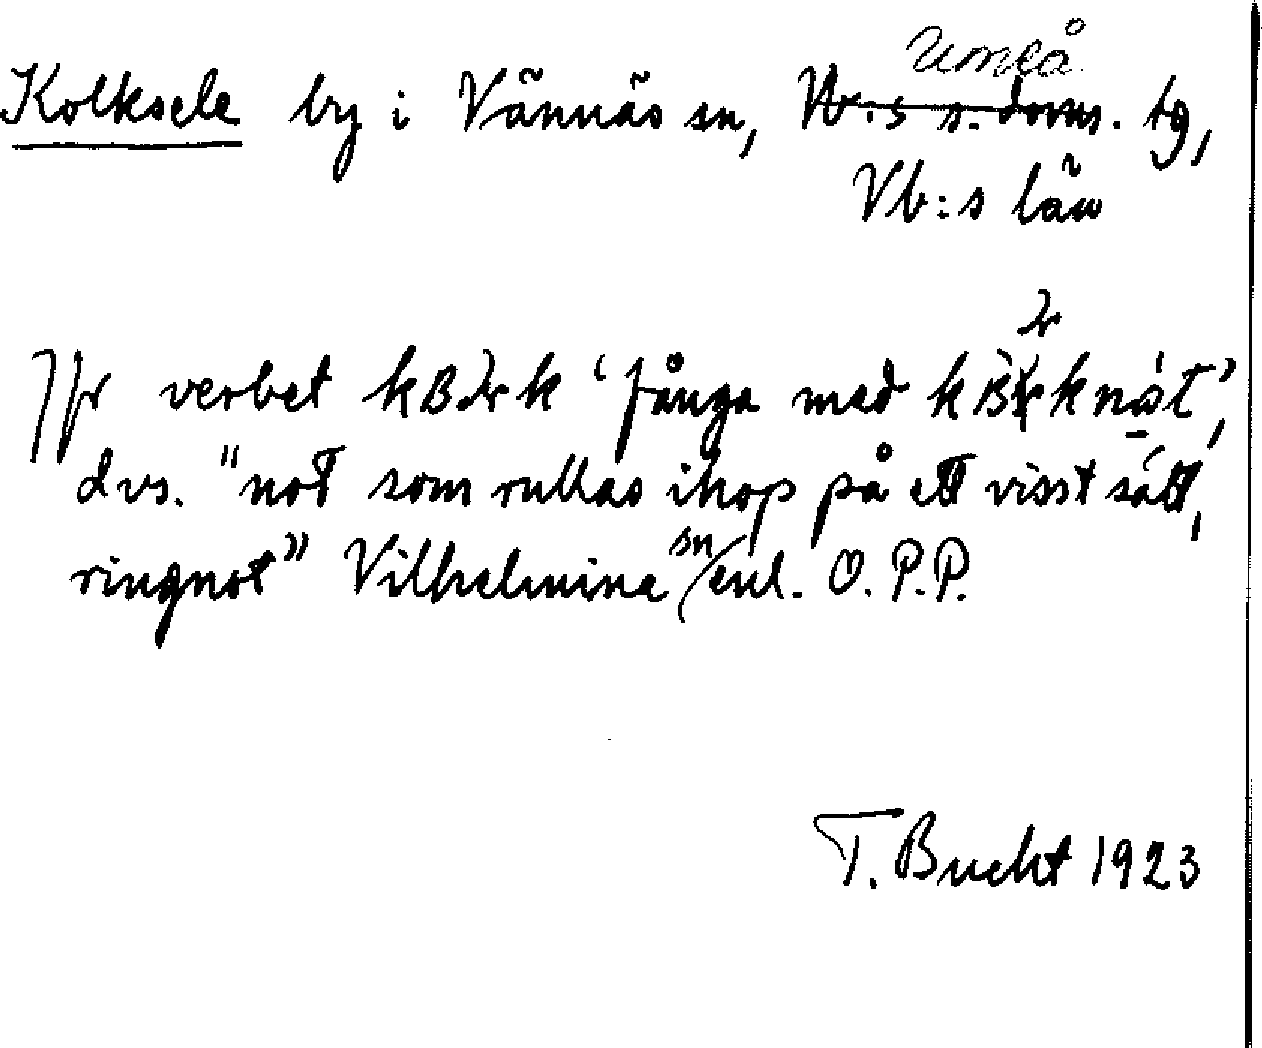 Umeå
Kolksele by i Vännäs sn, tg,
Vb:s län
Jfr verbet 'fånga med
dvs. "not som rullas ihop på ett visst sätt,
ringnot" Vilhelmina sn enl. O. P. P.
T. Bucht 1923